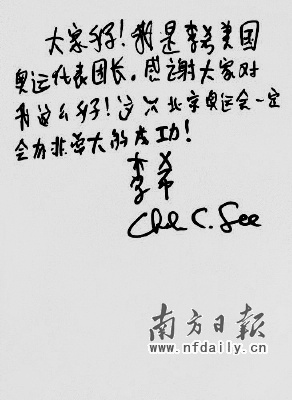 大家好！我是李希美国
奥运代表团长。感謝大家对
我这么好！这次北京奥运会一定
会有非常大的成功！
李
希
南方日報
www.nfdaily.cn